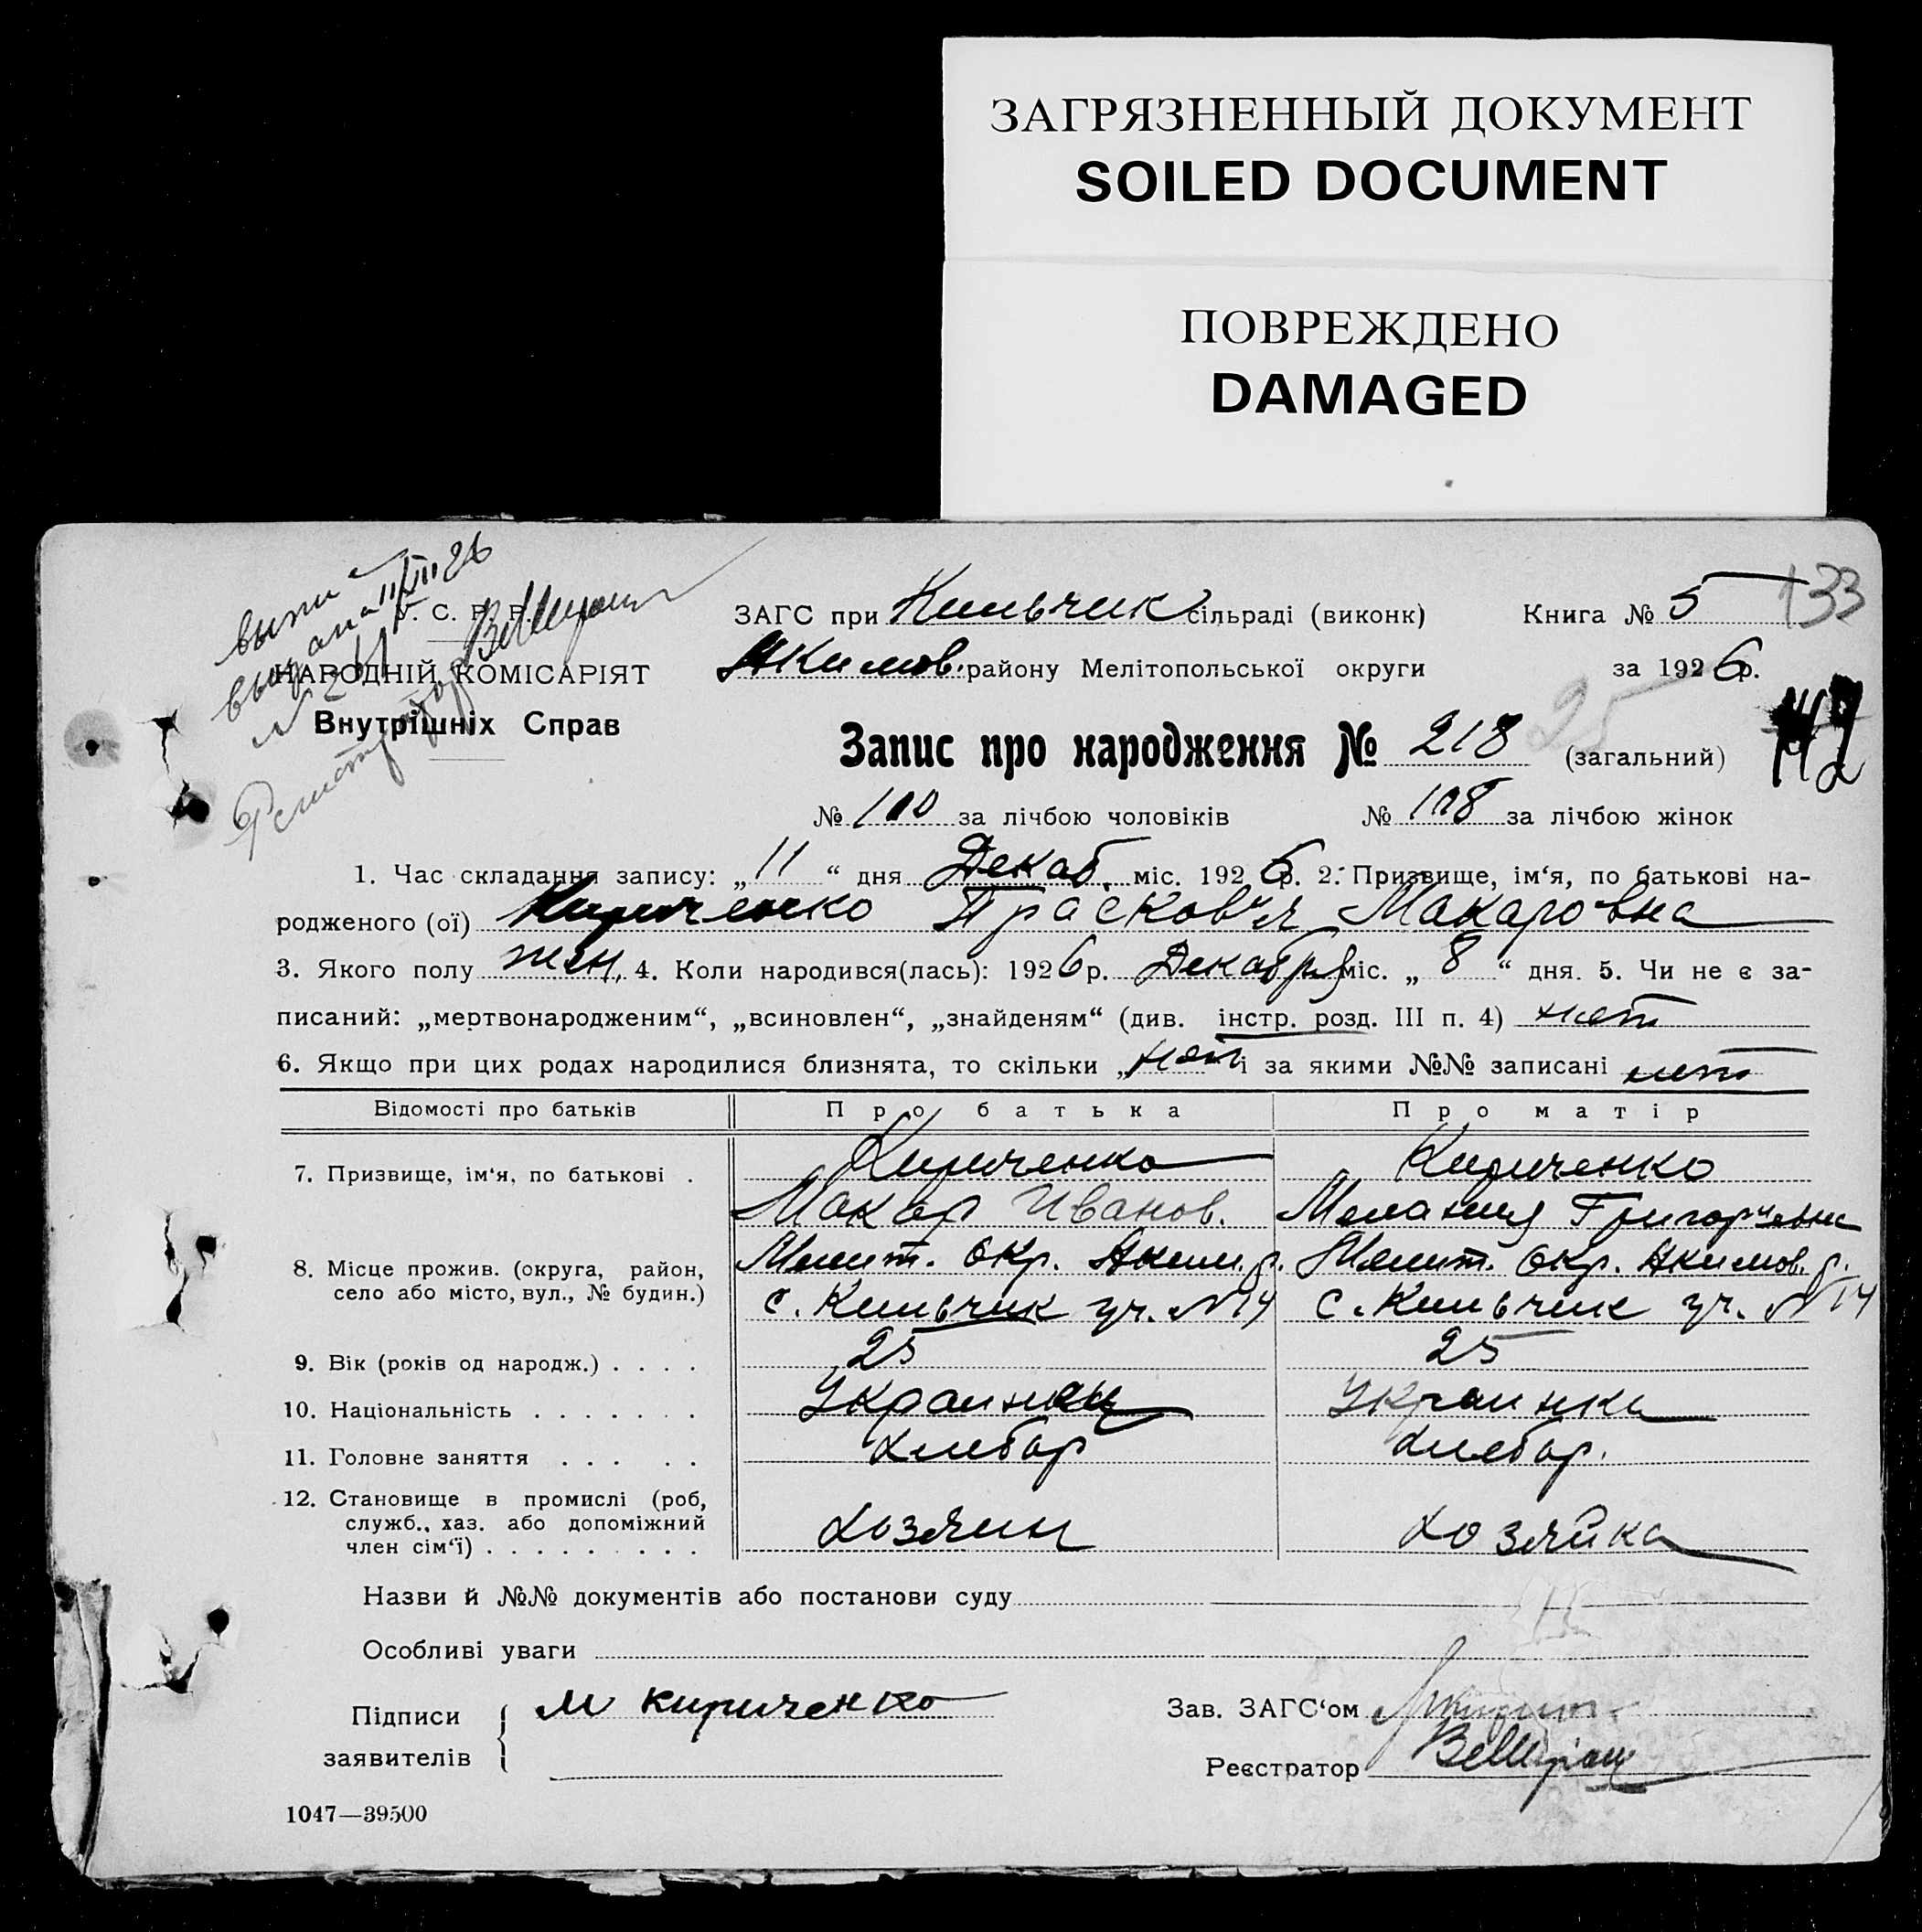 ЗАГРЯЗНЕННЫЙ ДОКУМЕНТ
SOILED DOCUMENT
ПОВРЕЖДЕНО
DAMAGED
У. С. Р. Р.
НАРОДНІЙ КОМІСАРІЯТ
Внутрішніх Справ
ЗАГС при Кильчик сільраді (виконк) Книга № 5 133
Акимов. району Мелітопольської округи за 1926 р.
25
Запис про народження № 218 (загальний)
№ 110 за лічбою чоловіків № 108 за лічбою жінок
1. Час складання запису: „ 11 “ дня Декаб. міс. 1926 р. 2. Призвище, ім‘я, по батькові на-
родженого (ої) Кириченко Прасковья Макаровна
3. Якого полу жен. 4. Коли народився(лась): 1926 р. Декабря міс. „ 8 “ дня. 5. Чи не є за-
писаний: „мертвонародженим“, „всиновлен“, „знайденям“ (див. інстр. розд. III п. 4) нет
6. Якщо при цих родах народилися близнята, то скільки „ нет і за якими №№ записані нет
Відомості про батьків Про батька Про матір
7. Призвище, ім‘я, по батькові . Кириченко Кириченко
Макар Иванов. Мелания Григорьевна
8. Місце прожив. (округа, район, Мелит. окр. Аким. р. Мелит. Окр. Акимов. р.
село або місто, вул., № будин.) с. Кильчик уч. № 14 с. Кильчик уч. № 14
9. Вік (років од народж.) . . . . 25 25
10. Національність . . . . . . . Украинец Украинка
11. Головне заняття . . . . . Хлебор Хлебор.
12. Становище в промислі (роб,
служб., хаз. або допоміжний Хозяин Хозяйка
член сім‘ї) . . . . . . . . .
Назви й №№ документів або постанови суду
Особливі уваги
Підписи М Кириченко Зав. ЗАГС‘ом
заявителів Реєстратор
1047—39500